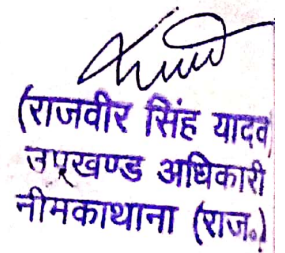 (राजवीर सिंह यादव
उपखण्ड अधिकारी
नीमकाथाना (राज॰)